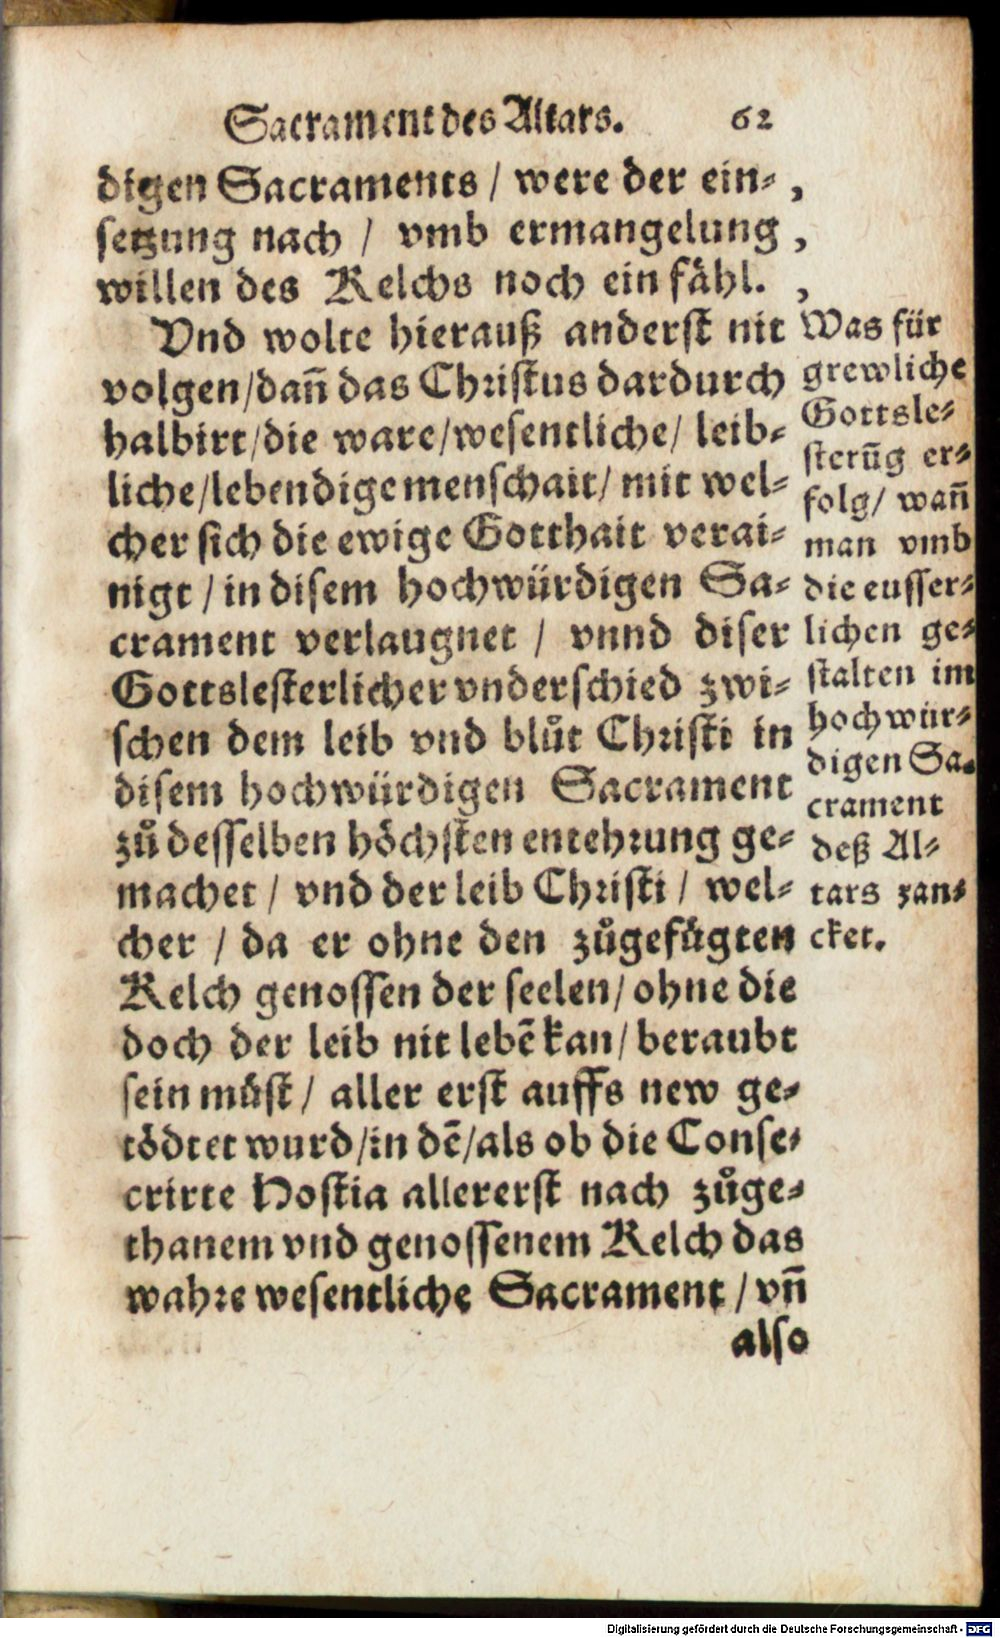 Sacrament des Altars. 62
digen Sacraments / were der ein⸗ ,
setzung nach / vmb ermangelung ,
willen des Kelchs noch ein fähl. ,
Vnd wolte hierauß anderst nit
volgen/dañ das Christus dardurch
halbirt/die ware/wesentliche/ leib⸗
liche/lebendige menschait/ mit wel⸗
cher sich die ewige Gotthait verai⸗
nigt / in disem hochwürdigen Sa⸗
crament verlaugnet / vnnd diser
Gottslesterlicher vnderschied zwi⸗
schen dem leib vnd blůt Christi in
disem hochwürdigen Sacrament
zů desselben höchsten entehrung ge⸗
machet / vnd der leib Christi / wel⸗
cher / da er ohne den zůgefügten
Kelch genossen der seelen/ ohne die
doch der leib nit lebē kan/ beraubt
sein müst / aller erst auffs new ge⸗
tödtet wurd/in dē/als ob die Conse⸗
crirte Hostia allererst nach zůge⸗
thanem vnd genossenem Kelch das
wahre wesentliche Sacrament / vñ
also
Was für
grewliche
Gottsle⸗
sterūg er⸗
folg/ wañ
man vmb
die eusser⸗
lichen ge⸗
stalten im
hochwür⸗
digen Sa⸗
crament
deß Al⸗
tars zan⸗
cket.
Digitalisierung gefördert durch die Deutsche Forschungsgemeinschaft - DFG